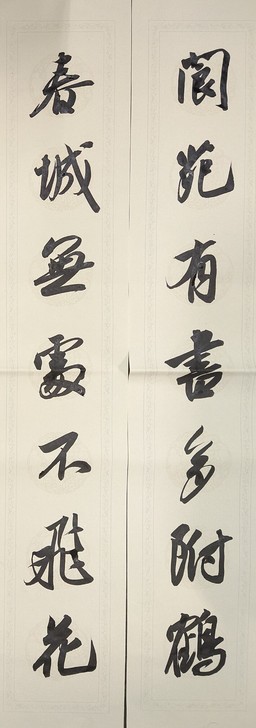 閬苑有書多附鶴
春城無處不飛花